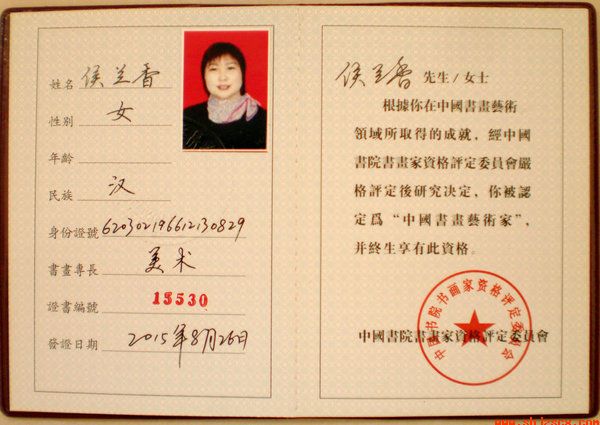 姓名 侯兰香
性别 女
年齡
民族 汉
身份證號 620302196612130829
書畫專長 美术
證書編號 13530
發證日期 2015年8月26日
侯兰香 先生/女士
根據你在中國書畫藝術
領域所取得的成就，經中國
書院書畫家資格評定委員會嚴
格評定後研究决定，你被認
定爲“中國書畫藝術家”，
并終生享有此資格。
中國書院書畫家資格評定委員會
中国书院书画家资格评定委员会
www.shjzscx.com